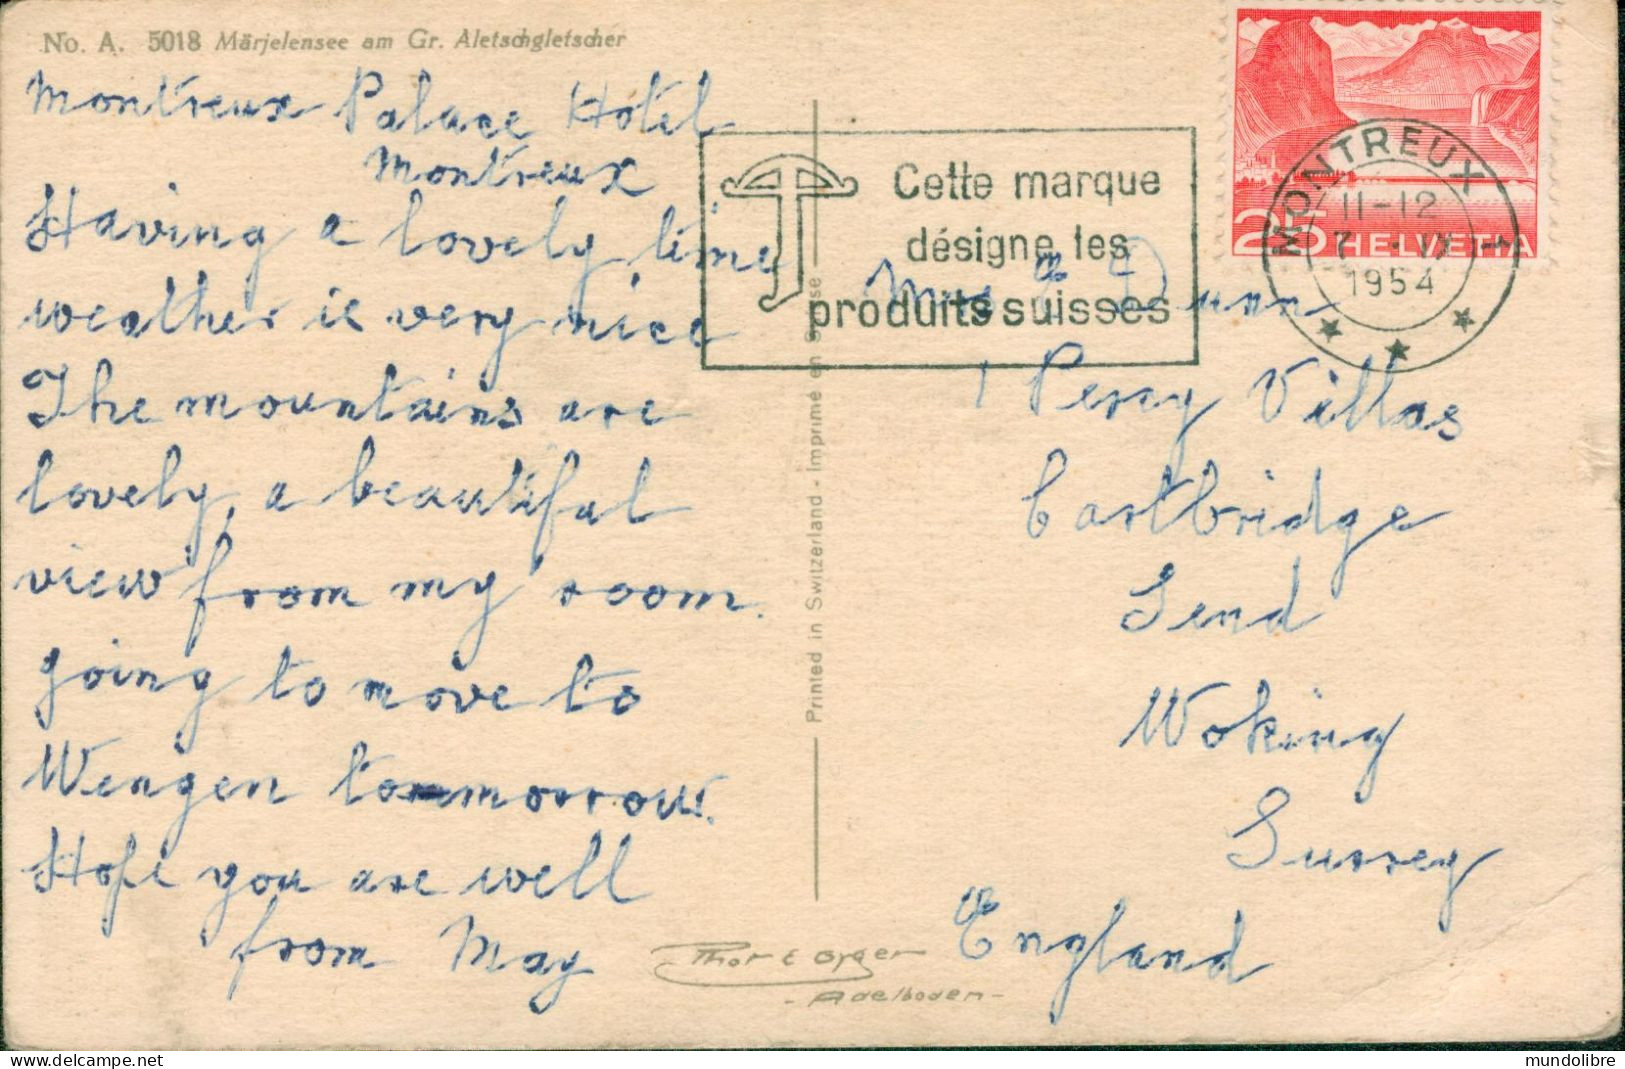 No. A. 5018 Märjelensee am Gr. Aletschgletscher
Montreux Palace Hotel
Montreux
Having a lovely time
weather is very nice
The mountains are
lovely, a beautiful
view from my room.
going to move to
Wengen tommorrow.
Hope you are well
from May
Printed in Switzerland - Imprimé en Suisse
Cette marque
désigne les
produits suisses
25 HELVETIA
MONTREUX 1
11-12
7
1954
Dunn
1 Percy Villas
Cartbridge
Send
Woking
Surrey
England
- Adelboden -
mundolibre